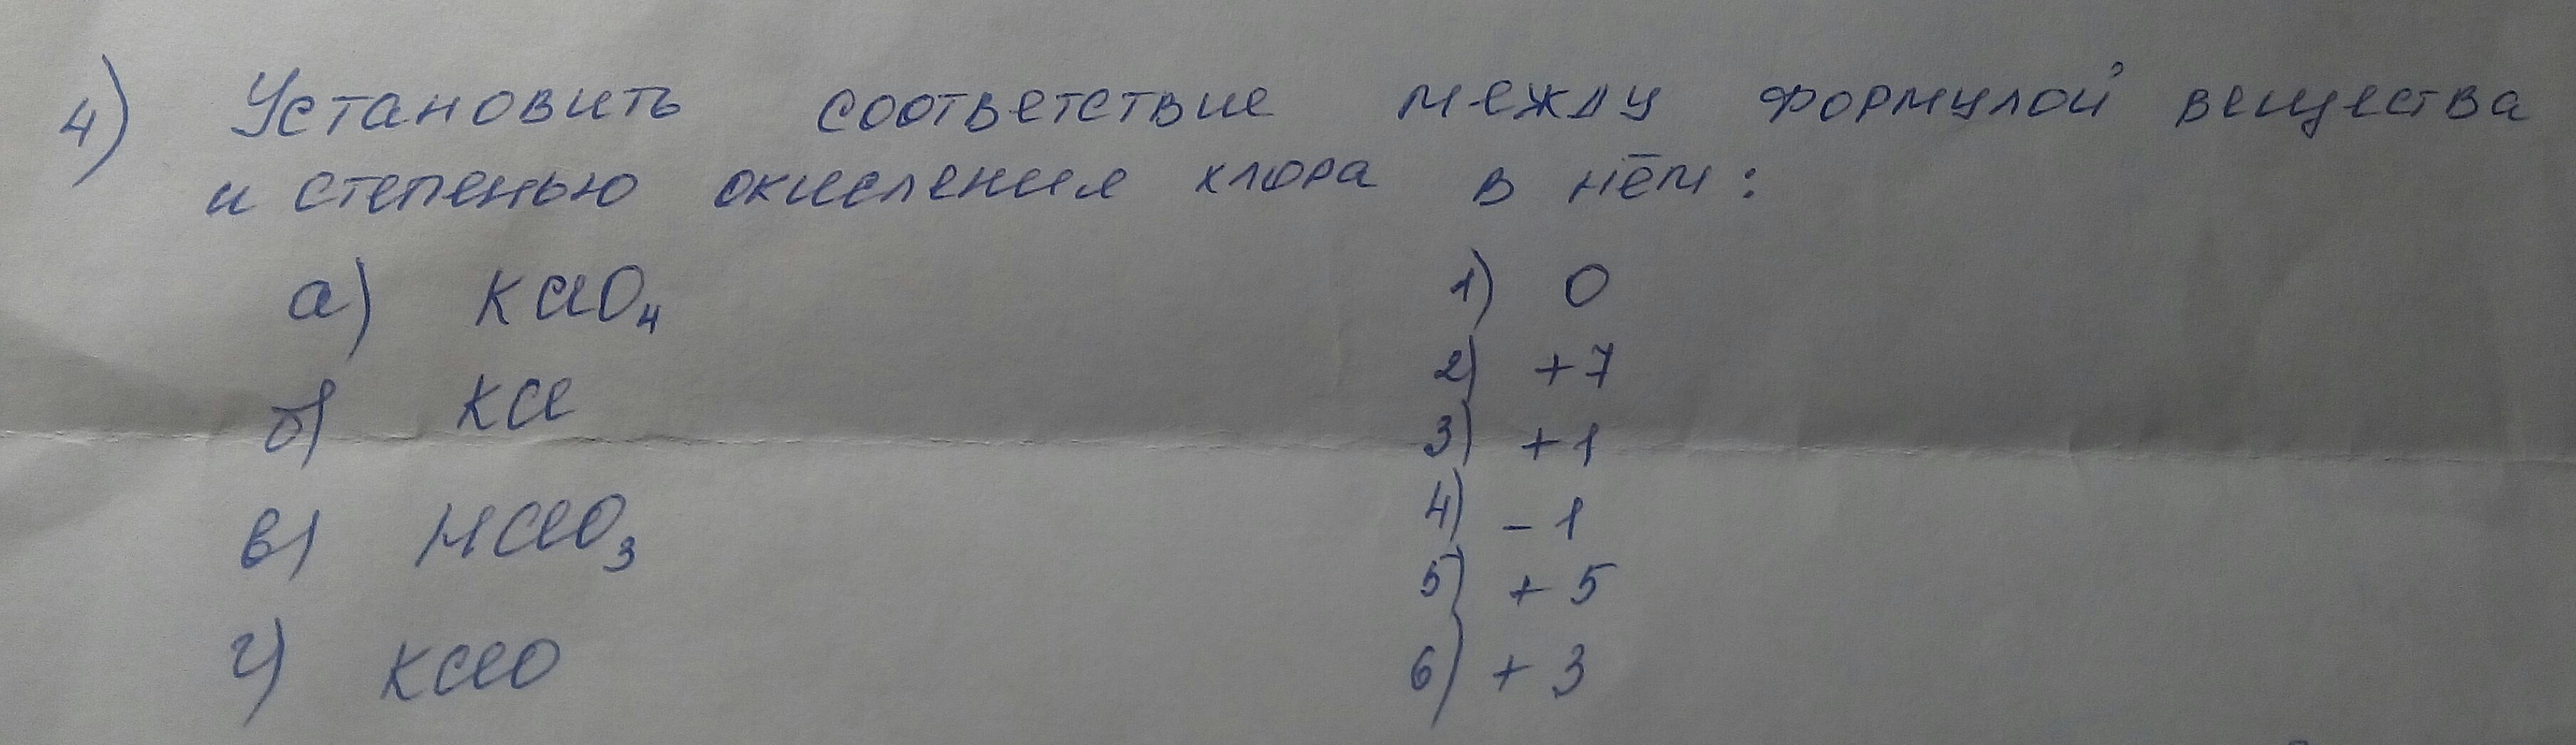 4) Установить соответствие между формулой вещества
и степенью окисления хлора в нём:
а) KClO₄ 1) 0
2) +7
б) KCl 3) +1
4) -1
в) HClO₃ 5) +5
г) KClO 6) +3